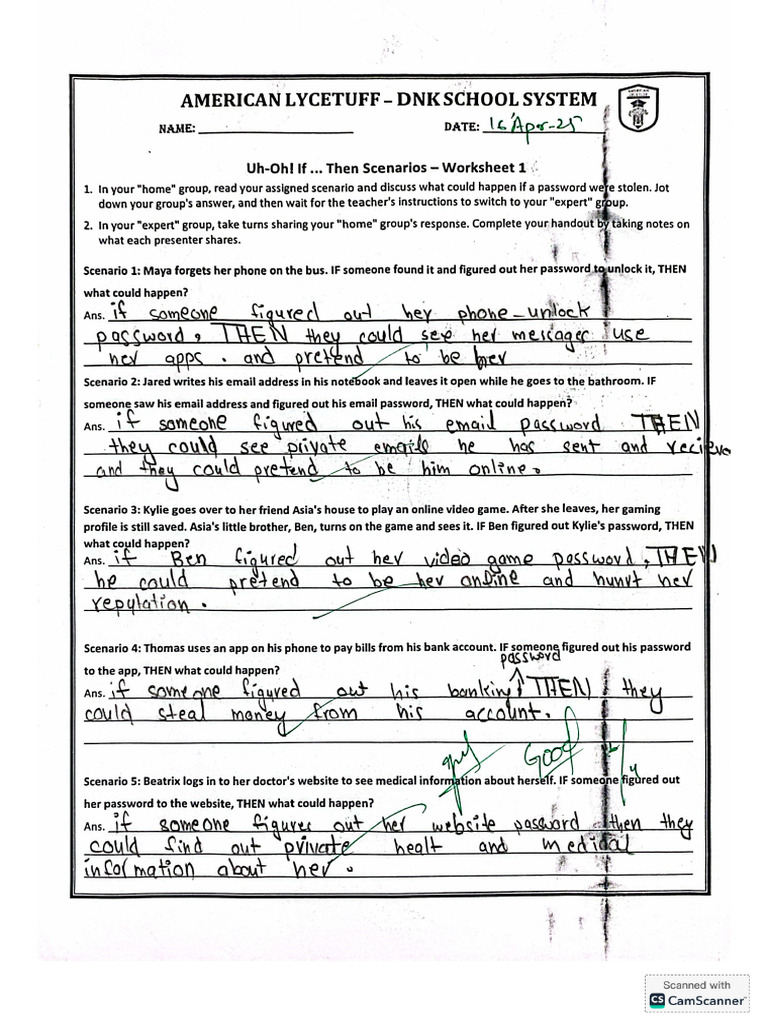 AMERICAN LYCETUFF – DNK SCHOOL SYSTEM
NAME: DATE: 16 Apr-25
Uh-Oh! If ... Then Scenarios – Worksheet 1
1. In your "home" group, read your assigned scenario and discuss what could happen if a password were stolen. Jot
down your group's answer, and then wait for the teacher's instructions to switch to your "expert" group.
2. In your "expert" group, take turns sharing your "home" group's response. Complete your handout by taking notes on
what each presenter shares.
Scenario 1: Maya forgets her phone on the bus. IF someone found it and figured out her password to unlock it, THEN
what could happen?
Ans. if someone figured out her phone-unlock
password, THEN they could see her messager use
her apps. and pretend to be her
Scenario 2: Jared writes his email address in his notebook and leaves it open while he goes to the bathroom. IF
someone saw his email address and figured out his email password, THEN what could happen?
Ans. if someone figured out his email password THEN
they could see private emails he has sent and recieve
and they could pretend to be him online.
Scenario 3: Kylie goes over to her friend Asia's house to play an online video game. After she leaves, her gaming
profile is still saved. Asia's little brother, Ben, turns on the game and sees it. IF Ben figured out Kylie's password, THEN
what could happen?
Ans. if Ben figured out her video game password, THEN
he could pretend to be her online and hunrt her
repytation.
Scenario 4: Thomas uses an app on his phone to pay bills from his bank account. IF someone figured out his password
to the app, THEN what could happen?
password
Ans. if someone figyred out his banking THEN they
could steal money from his account.
Good
Scenario 5: Beatrix logs in to her doctor's website to see medical information about herself. IF someone figured out
her password to the website, THEN what could happen?
Ans. if someone figures out her website password then they
could find out private healt and medical
information about her.
Scanned with
CS CamScanner